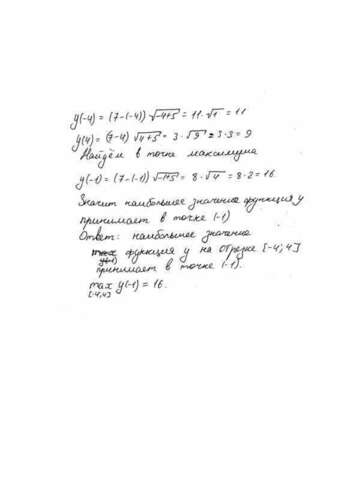 y(-4) = (7-(-4)) √-4+5 = 11·√1 = 11
y(4) = (7-4) √4+5 = 3·√9 = 3·3 = 9
Найдём в точке максимума
y(-1) = (7-(-1)) √-1+5 = 8·√4 = 8·2 = 16.
Значит наибольшее значение функция y
принимает в точке (-1)
Ответ: наибольшее значение
функция y на отрезке [-4; 4]
принимает в точке (-1).
max y(-1) = 16.
[-4;4]